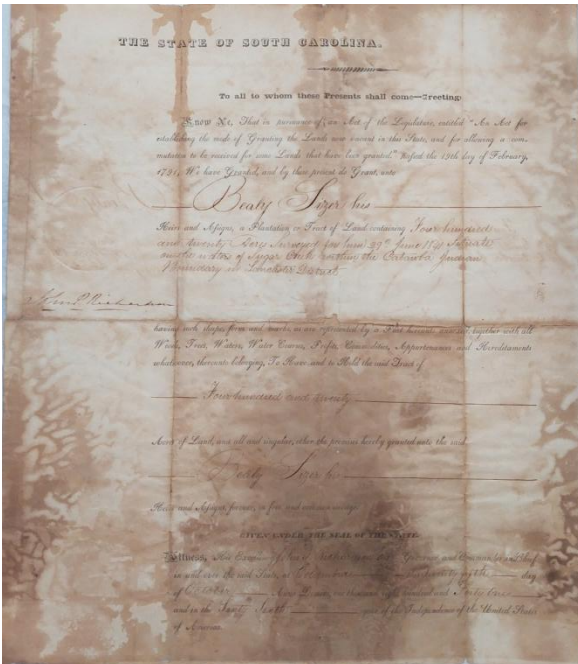 THE STATE OF SOUTH CAROLINA.
To all to whom these Presents shall come—Greeting:
Know Ye, That in pursuance of an Act of the Legislature, entitled "An Act for
establishing the mode of Granting the Lands now vacant in this State, and for allowing a com-
mutation to be received for some Lands that have been granted." Passed the 19th day of February,
1791, We have Granted, and by these presents do Grant, unto
Bealy Sizer his
Heirs and Assigns, a Plantation or Tract of Land containing Four hundred
and twenty Acres Surveyed for him 29th June 1841 Situate
of Sugar Creek within the Catawba Indian
Boundary in Lancaster District
John P. Richardson
having such shape, form and marks, as are represented by a Plat hereunto annexed, together with all
Woods, Trees, Waters, Water Courses, Profits, Commodities, Appurtenances and Hereditaments
whatsoever, thereunto belonging, To Have and to Hold the said Tract of
Four hundred and twenty
Acres of Land, and all and singular, other the premises hereby granted unto the said
Bealy Sizer his
Heirs and Assigns, forever, in free and common soccage.
GIVEN UNDER THE SEAL OF THE STATE.
Witness, His Excellency Governor and Commander-in-Chief
in and over the said State, at Columbia day
of Anno Domini, one thousand eight hundred and Forty one
and in the Sixty Sixth year of the Independence of the United States
of America.